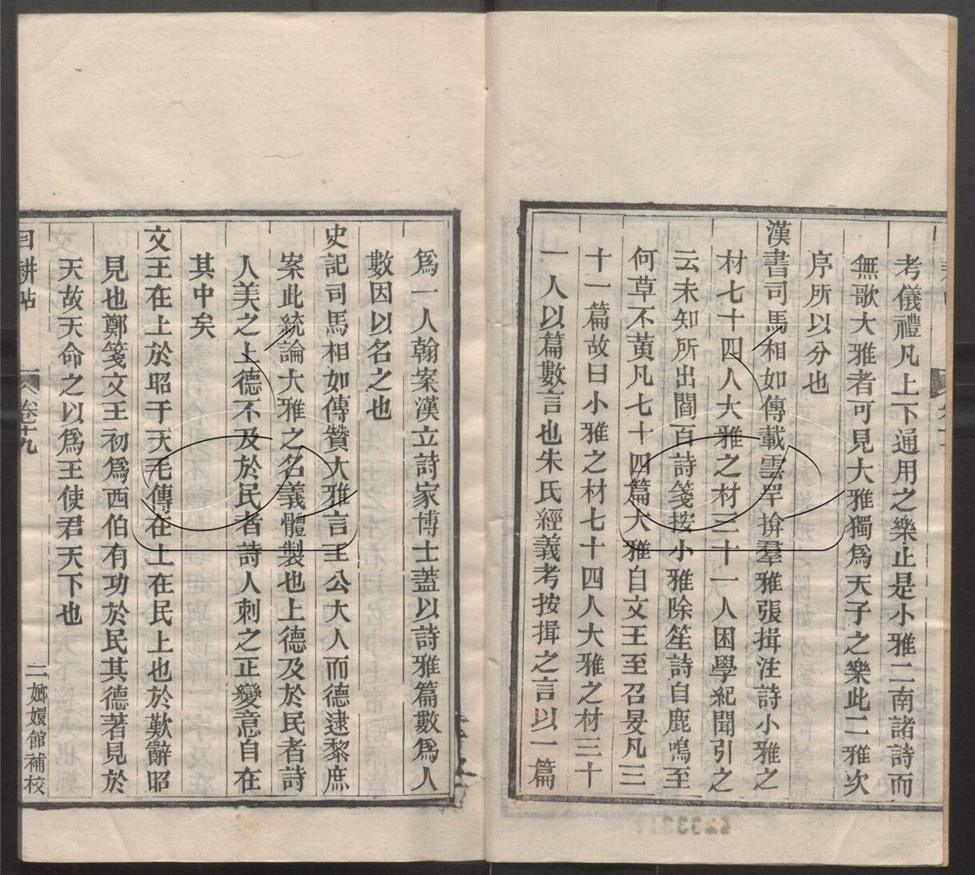 考儀禮凡上下通用之樂止是小雅二南諸詩而
無歌大雅者可見大雅獨爲天子之樂此二雅次
序所以分也
漢書司馬相如傳載雲䍐揜羣雅張揖注詩小雅之
材七十四人大雅之材三十一人困學紀聞引之
云未知所出閻百詩箋按小雅除笙詩自鹿鳴至
何草不黃凡七十四篇大雅自文王至召旻凡三
十一篇故曰小雅之材七十四人大雅之材三十
一人以篇數言也朱氏經義考按揖之言以一篇
爲一人翰案漢立詩家博士蓋以詩雅篇數爲人
數因以名之也
史記司馬相如傳贊大雅言王公大人而德逮黎庶
案此統論大雅之名義體製也上德及於民者詩
人美之上德不及於民者詩人刺之正變意自在
其中矣
文王在上於昭于天毛傳在上在民上也於歎辭昭
見也鄭箋文王初爲西伯有功於民其德著見於
天故天命之以爲王使君天下也
目耕帖
卷十九
二
嫏嬛館補校